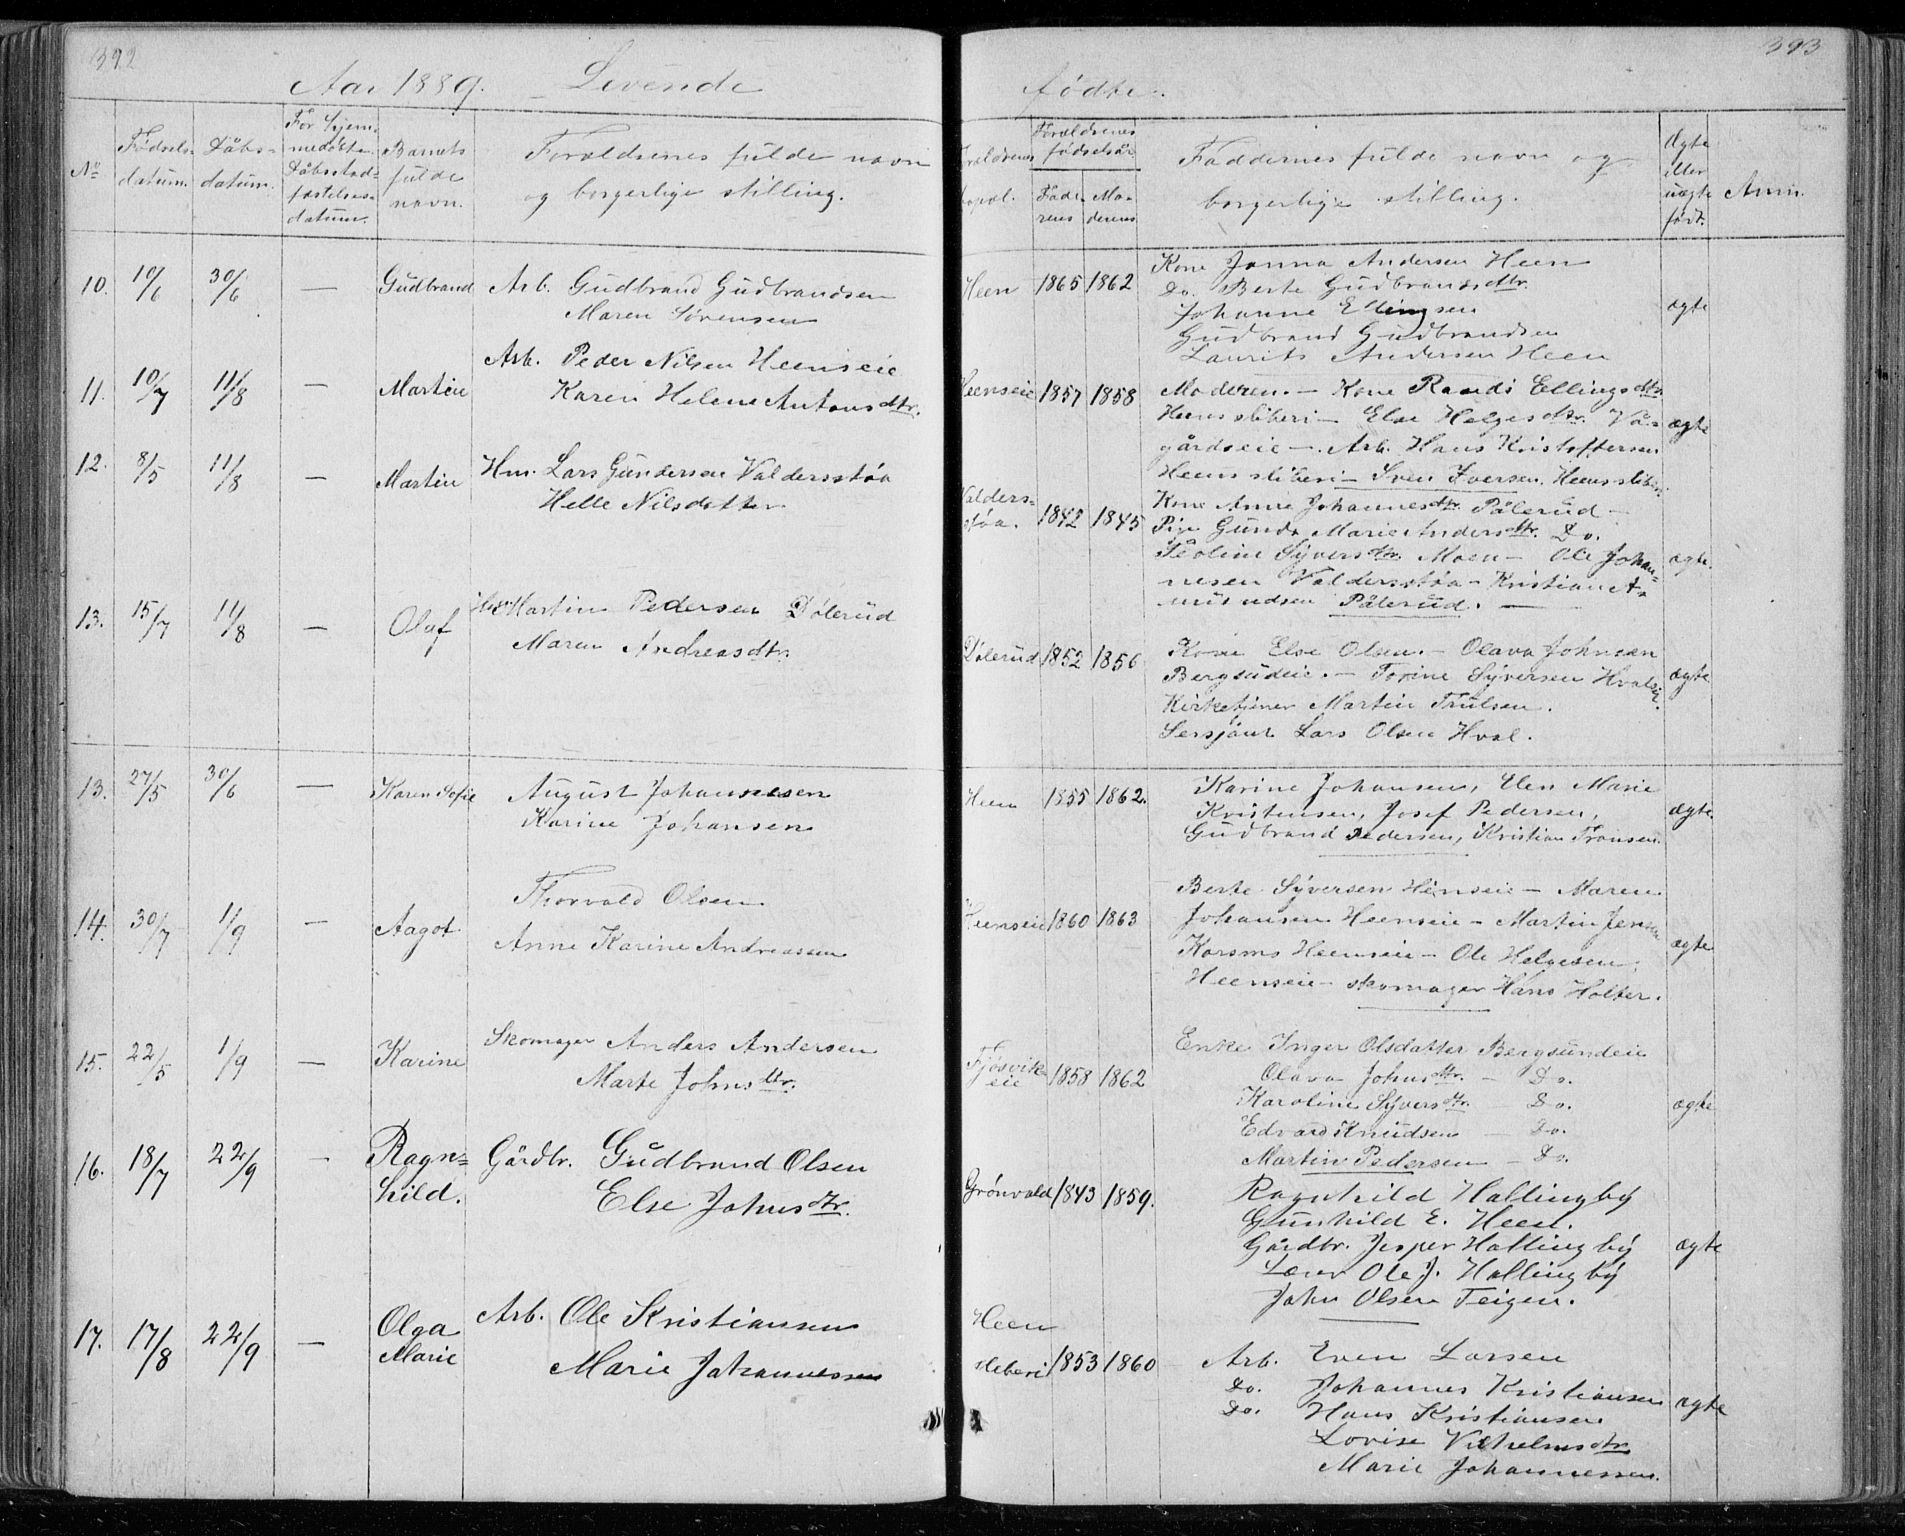 392
Aar 1889. Levende
No
Fødsels-
datum.
Dåbs-
datum.
For hjem-
medøbte
Dåbsstad-
fæstelses-
datum.
Barnets
fulde
navn.
Forældrenes fulde navn
og borgerlige stilling.
10. 10/6 30/6 — Gudbrand Arb. Gudbrand Gudbrandsen
Maren Sørensen
11. 10/7 11/8 — Martin Arb. Peder Nilsen Heenseie
Karen Helene Antonsdtr.
12. 8/5 11/8 — Martin Hm. Lars Gundersen Valdersstøa
Helle Nilsdatter
13. 15/7 11/8 — Olaf Martin Pedersen Dølerud
Maren Andreasdtr.
13. 27/5 30/6 — Karen Sofie August Johannesen
Karine Johansen
14. 30/7 1/9 — Aagot Thorvald Olsen
Anne Karine Andreassen
15. 22/5 1/9 — Karine Skomager Anders Andersen
Marte Johnsdtr.
16. 18/7 22/9 — Ragn=
hild. Gårdbr. Gudbrand Olsen
Else Johnsdtr.
17. 17/8 22/9 — Olga
Marie Arb. Ole Kristiansen
Marie Johannessen
393
fødte.
Forældrenes
bopæl.
Forældrenes
fødselsår
Fade-
rens
Mo-
derens
Faddernes fulde navn og
borgerlige stilling.
Ægte
eller
uægte
født.
Anm.
Heen 1865 1862 Kone Janna Andersen Heen
Do. Berte Gudbrandsdtr.
Johanne Ellingsen
Gudbrand Gudbrandsen
Laurits Andersen Heen
ægte
Heenseie 1857 1858 Moderen. — Kone Randi Ellingsdtr.
Heensliberi — Else Helgesdtr. Vå-
gårdseie —. Arb. Hans Kristoffersen
Heensliberi — Sven Iversen, Heenssliberi
ægte
Valders=
støa. 1842 1845 Kone Anne Johannesdtr. Pålerud —
Pige Gunda Marie Andersdtr. Do.
Syversdtr. Moen — Ole Johan=
nesen Valdersstøa — Kristian A=
mundsen Pålerud. —
ægte.
Dølerud 1852 1856 Kone Else Olsen. — Olava Johnsen
Bergsundeie. — Torine Syversen Hvalseie.
Kirketjener Martin Trulsen.
Sersjant Lars Olsen Hval.
ægte
Heen 1855 1862. Karine Johansen, Elen Marie
Kristensen, Josef Pedersen,
Gudbrand Pedersen, Kristian Fransen.
ægte
Heenseie 1860 1863 Berte Syversen Heenseie — Maren
Johansen Heenseie — Martin Jensen
Korsmo Heenseie — Ole Helgesen
Heenseie — skomager Hans Holter.
ægte
Fjøsvik-
eie 1858 1862 Enke Inger Olsdatter Bergsundeie
Olava Johnsdtr. — Do.
Karoline Syversdtr. — Do.
Edvard Knudsen — Do.
Martin Pedersen — Do.
ægte
Grønvold 1843 1859. Ragnhild Hallingby
Gunhild E. Heen.
Gårdbr. Jesper Hallingby
Lærer Ole J. Hallingby
John Olsen Teigen.
ægte
Heen
sliberi 1853 1860 Arb. Even Larsen
Do. Johannes Kristiansen
Do. Hans Kristiansen
Lovise Vilhelmsdtr.
Marie Johannessen.
ægte